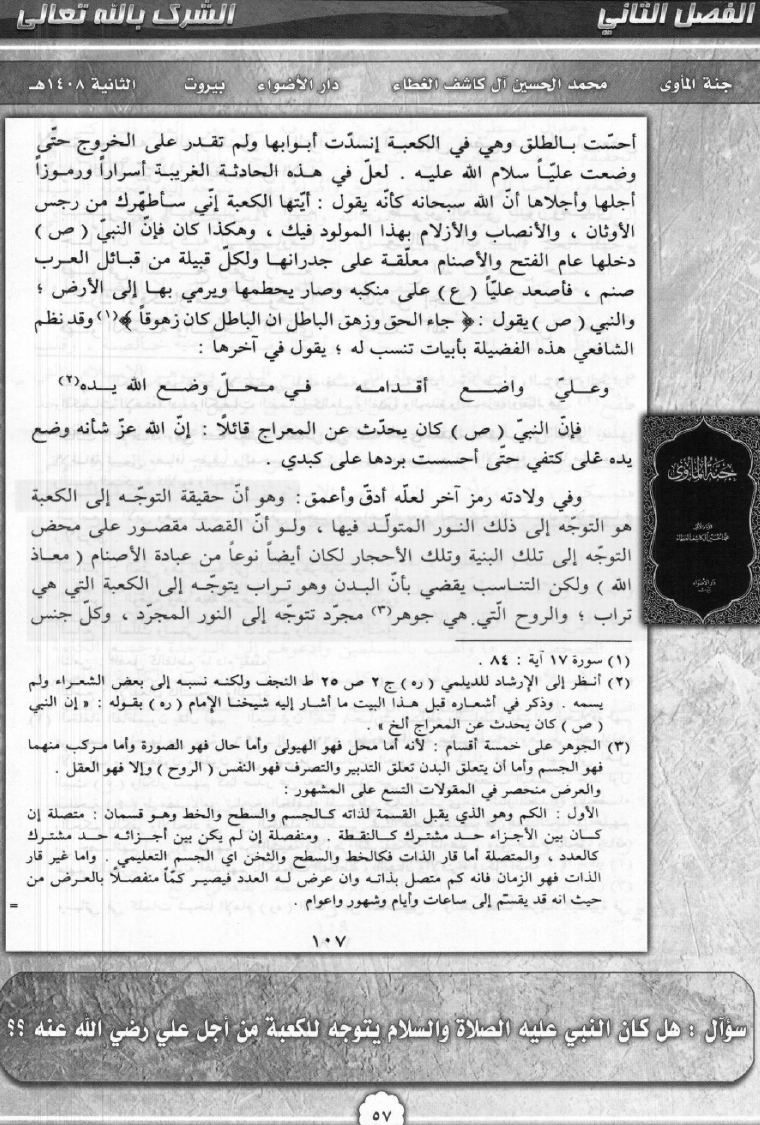 الفصل الثاني الشرك بالله تعالى
جنة المأوى محمد الحسين آل كاشف الغطاء دار الأضواء بيروت الثانية ١٤٠٨هـ
أحسّت بالطلق وهي في الكعبة إنسدّت أبوابها ولم تقدر على الخروج حتّى
وضعت عليّاً سلام الله عليه . لعلّ في هذه الحادثة الغريبة أسراراً ورموزاً
أجلها وأجلاها أنّ الله سبحانه كأنّه يقول : أيّتها الكعبة إنّي سأطهّرك من رجس
الأوثان ، والأنصاب والأزلام بهذا المولود فيك ، وهكذا كان فإنّ النبيّ ( ص )
دخلها عام الفتح والأصنام معلّقة على جدرانها ولكلّ قبيلة من قبائل العرب
صنم ، فأصعد عليّاً ( ع ) على منكبه وصار يحطمها ويرمي بها إلى الأرض ؛
والنبي ( ص ) يقول : ﴿ جاء الحق وزهق الباطل ان الباطل كان زهوقاً ﴾(١) وقد نظم
الشافعي هذه الفضيلة بأبيات تنسب له ؛ يقول في آخرها :
وعلي واضع أقدامه في محل وضع الله يده(٢)
فإن النبيّ ( ص ) كان يحدّث عن المعراج قائلا : إنّ الله عزّ شأنه وضع
يده على كتفي حتى أحسست بردها على كبدي .
وفي ولادته رمز آخر لعلّه أدقّ وأعمق : وهو أنّ حقيقة التوجّه إلى الكعبة
هو التوجّه إلى ذلك النور المتولّد فيها ، ولو أنّ القصد مقصور على محض
التوجّه إلى تلك البنية وتلك الأحجار لكان أيضاً نوعاً من عبادة الأصنام ( معاذ
الله ) ولكن التناسب يقضي بأنّ البدن وهو تراب يتوجّه إلى الكعبة التي هي
تراب ؛ والروح الّتي هي جوهر(٣) مجرّد تتوجّه إلى النور المجرّد ، وكلّ جنس
(١) سورة ١٧ آية : ٨٤ .
(٢) أنظر إلى الإرشاد للديلمي ( ره ) ج ٢ ص ٢٥ ط النجف ولكنه نسبه إلى بعض الشعراء ولم
يسمه . وذكر في أشعاره قبل هذا البيت ما أشار إليه شيخنا الإمام ( ره ) بقوله : « إن النبي
( ص ) كان يحدث عن المعراج ألخ » .
(٣) الجوهر على خمسة أقسام : لأنه أما محل فهو الهيولى وأما حال فهو الصورة وأما مركب منهما
فهو الجسم وأما أن يتعلق البدن تعلق التدبير والتصرف فهو النفس ( الروح ) وإلا فهو العقل .
والعرض منحصر في المقولات التسع على المشهور :
الأول : الكم وهو الذي يقبل القسمة لذاته كالجسم والسطح والخط وهو قسمان : متصلة إن
كان بين الأجزاء حد مشترك كالنقطة . ومنفصلة إن لم يكن بين أجزائه حد مشترك
كالعدد ، والمتصلة أما قار الذات فكالخط والسطح والثخن اي الجسم التعليمي . واما غير قار
الذات فهو الزمان فانه كم متصل بذاته وان عرض له العدد فيصير كمّاً منفصلًا بالعرض من
حيث انه قد يقسّم إلى ساعات وأيام وشهور واعوام . =
١٠٧
جنة المأوى
سؤال : هل كان النبي عليه الصلاة والسلام يتوجه للكعبة من أجل علي رضي الله عنه ؟؟
٥٧